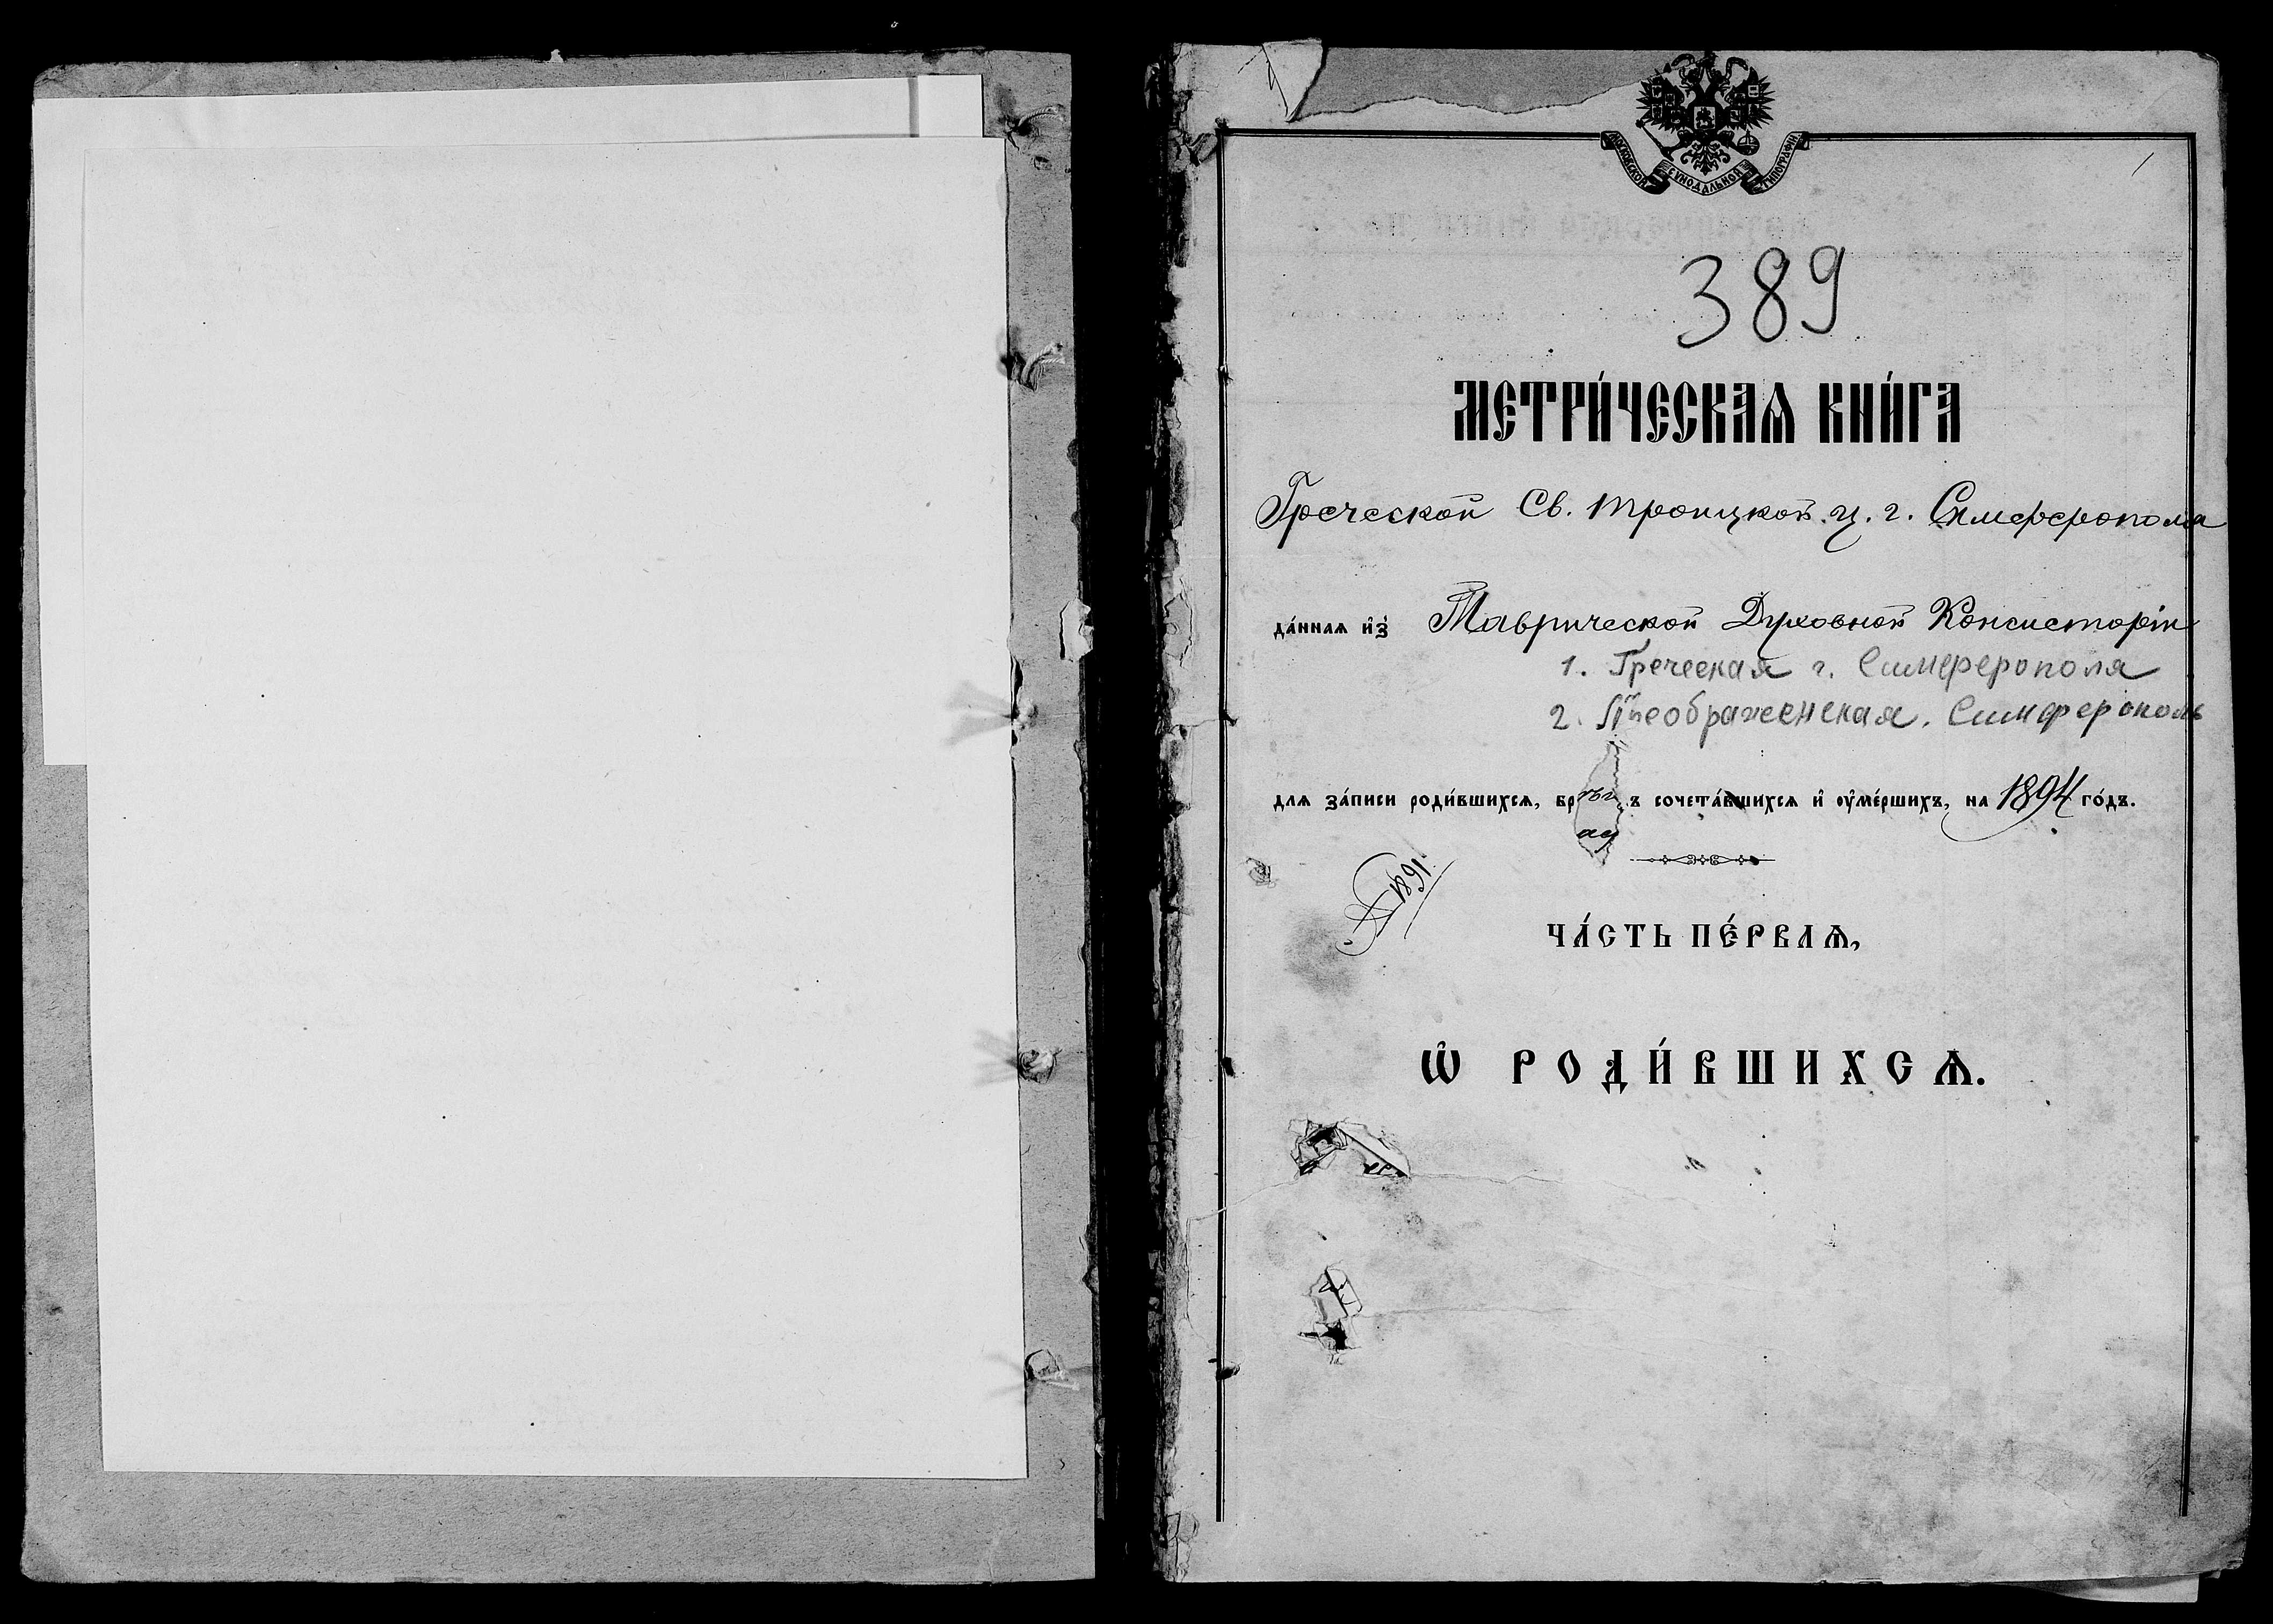 МОСКОВСКОЙ СѴНОДАЛЬНОЙ ТИПОГРАФІИ
389
МЕТРИ́ЧЕСКАѦ КНИ́ГА
Греческой Св. Троицкой ц. г. Симферополя
да́ннаѧ и҆з̾ Таврической Духовной Консисторіи
1. Греческая г. Симферополя
2. Преображенская. Симферополь
длѧ за́писи роди́вшихсѧ, бр ъ сочета́вшихсѧ и҆ ᲂу҆ме́ршихъ, на 1894 го́дъ.
1891
ЧА́СТЬ ПЕ́РВАѦ,
Ѽ РОДИ́ВШИХСѦ.